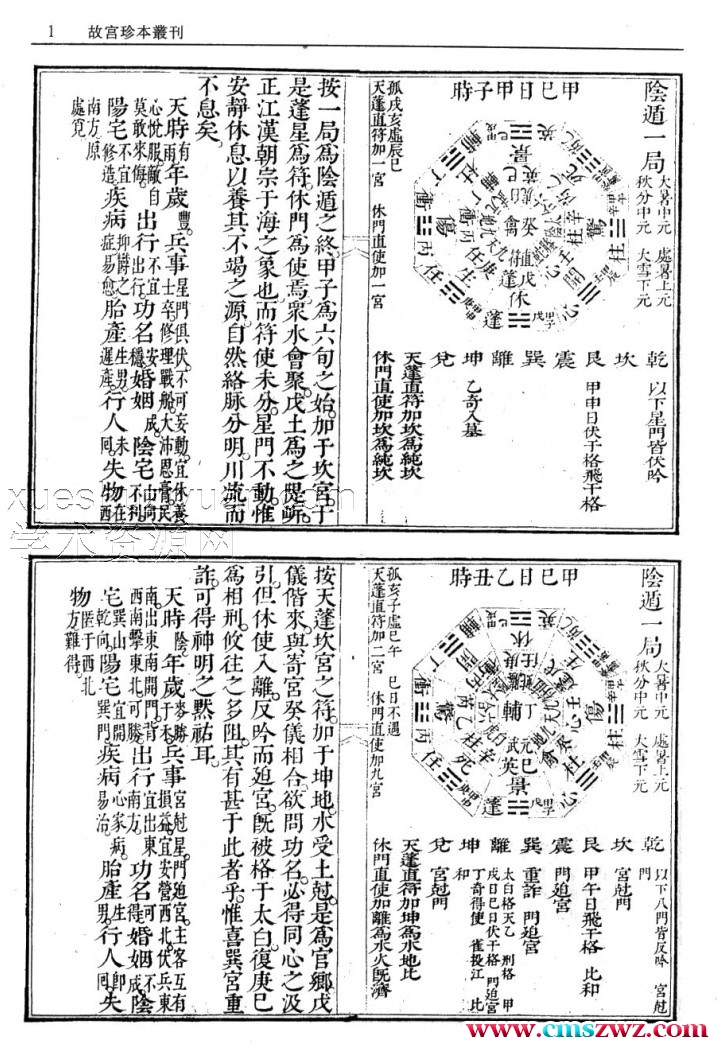 1 故宫珍本叢刊
陰遁一局
大暑中元 處暑上元
秋分中元 大雪下元
甲己日甲子時
孤戌亥虛辰巳
天蓬直符加一宮 休門直使加一宮
乾 以下星門皆伏吟
坎
艮 甲申日伏干格飛干格
震
巽
離
坤 乙奇入墓
兌
天蓬直符加坎爲純坎
休門直使加坎爲純坎
按一局爲陰遁之終甲子爲六旬之始加于坎宮于
是蓬星爲符休門爲使焉衆水會聚戊土爲之隄岍
正江漢朝宗于海之象也而符使未分星門不動惟
安靜休息以養其不竭之源自然絡脉分明川流而
不息矣
天時有雨年歲豐兵事星門俱伏不可妄動宜休養士卒修理戰船大沛恩膏民
心悅服敵自莫敢來侮出行不宜出行功名安穩婚姻成陰宅山向不利
陽宅不宜修造疾病抑鬱之症易愈胎產生男遲產行人未回失物在西
南方原處覓
陰遁一局
大暑中元 處暑上元
秋分中元 大雪下元
甲己日乙丑時
孤亥子虛巳午 己日不遇
天蓬直符加二宮 休門直使加九宮
乾 以下八門皆反吟 宮尅門
坎 宮尅門
艮 甲午日飛干格 比和
震 門迫宮
巽 重詐 門迫宮
離 太白格天乙 刑格 甲戌日己日伏干格 門迫宮
坤 丁奇得使 雀投江 比和
兌 宮尅門
天蓬直符加坤爲水地比
休門直使加離爲水火旣濟
按天蓬坎宮之符加于坤地水受土尅是爲官鄉戊
儀偕來與寄宮癸儀相合欲問功名必得同心之汲
引但休使入離反吟而迫宮旣被格于太白復庚己
爲相刑攸往之多阻其有甚于此者乎惟喜巽宮重
詐可得神明之默祐耳
天時陰年歲麥勝于禾兵事宮尅星門迫宮主客互有損益宜安營西北伏兵東
南出東南開門背西南擊東北可勝出行宜出東南方功名可得婚姻不成陰
宅巽山乾向陽宅宜開巽門疾病心家病易治胎產生男行人卽回失
物匿于西北方難得
xuesh
学术资源网
www.cmszwz.com